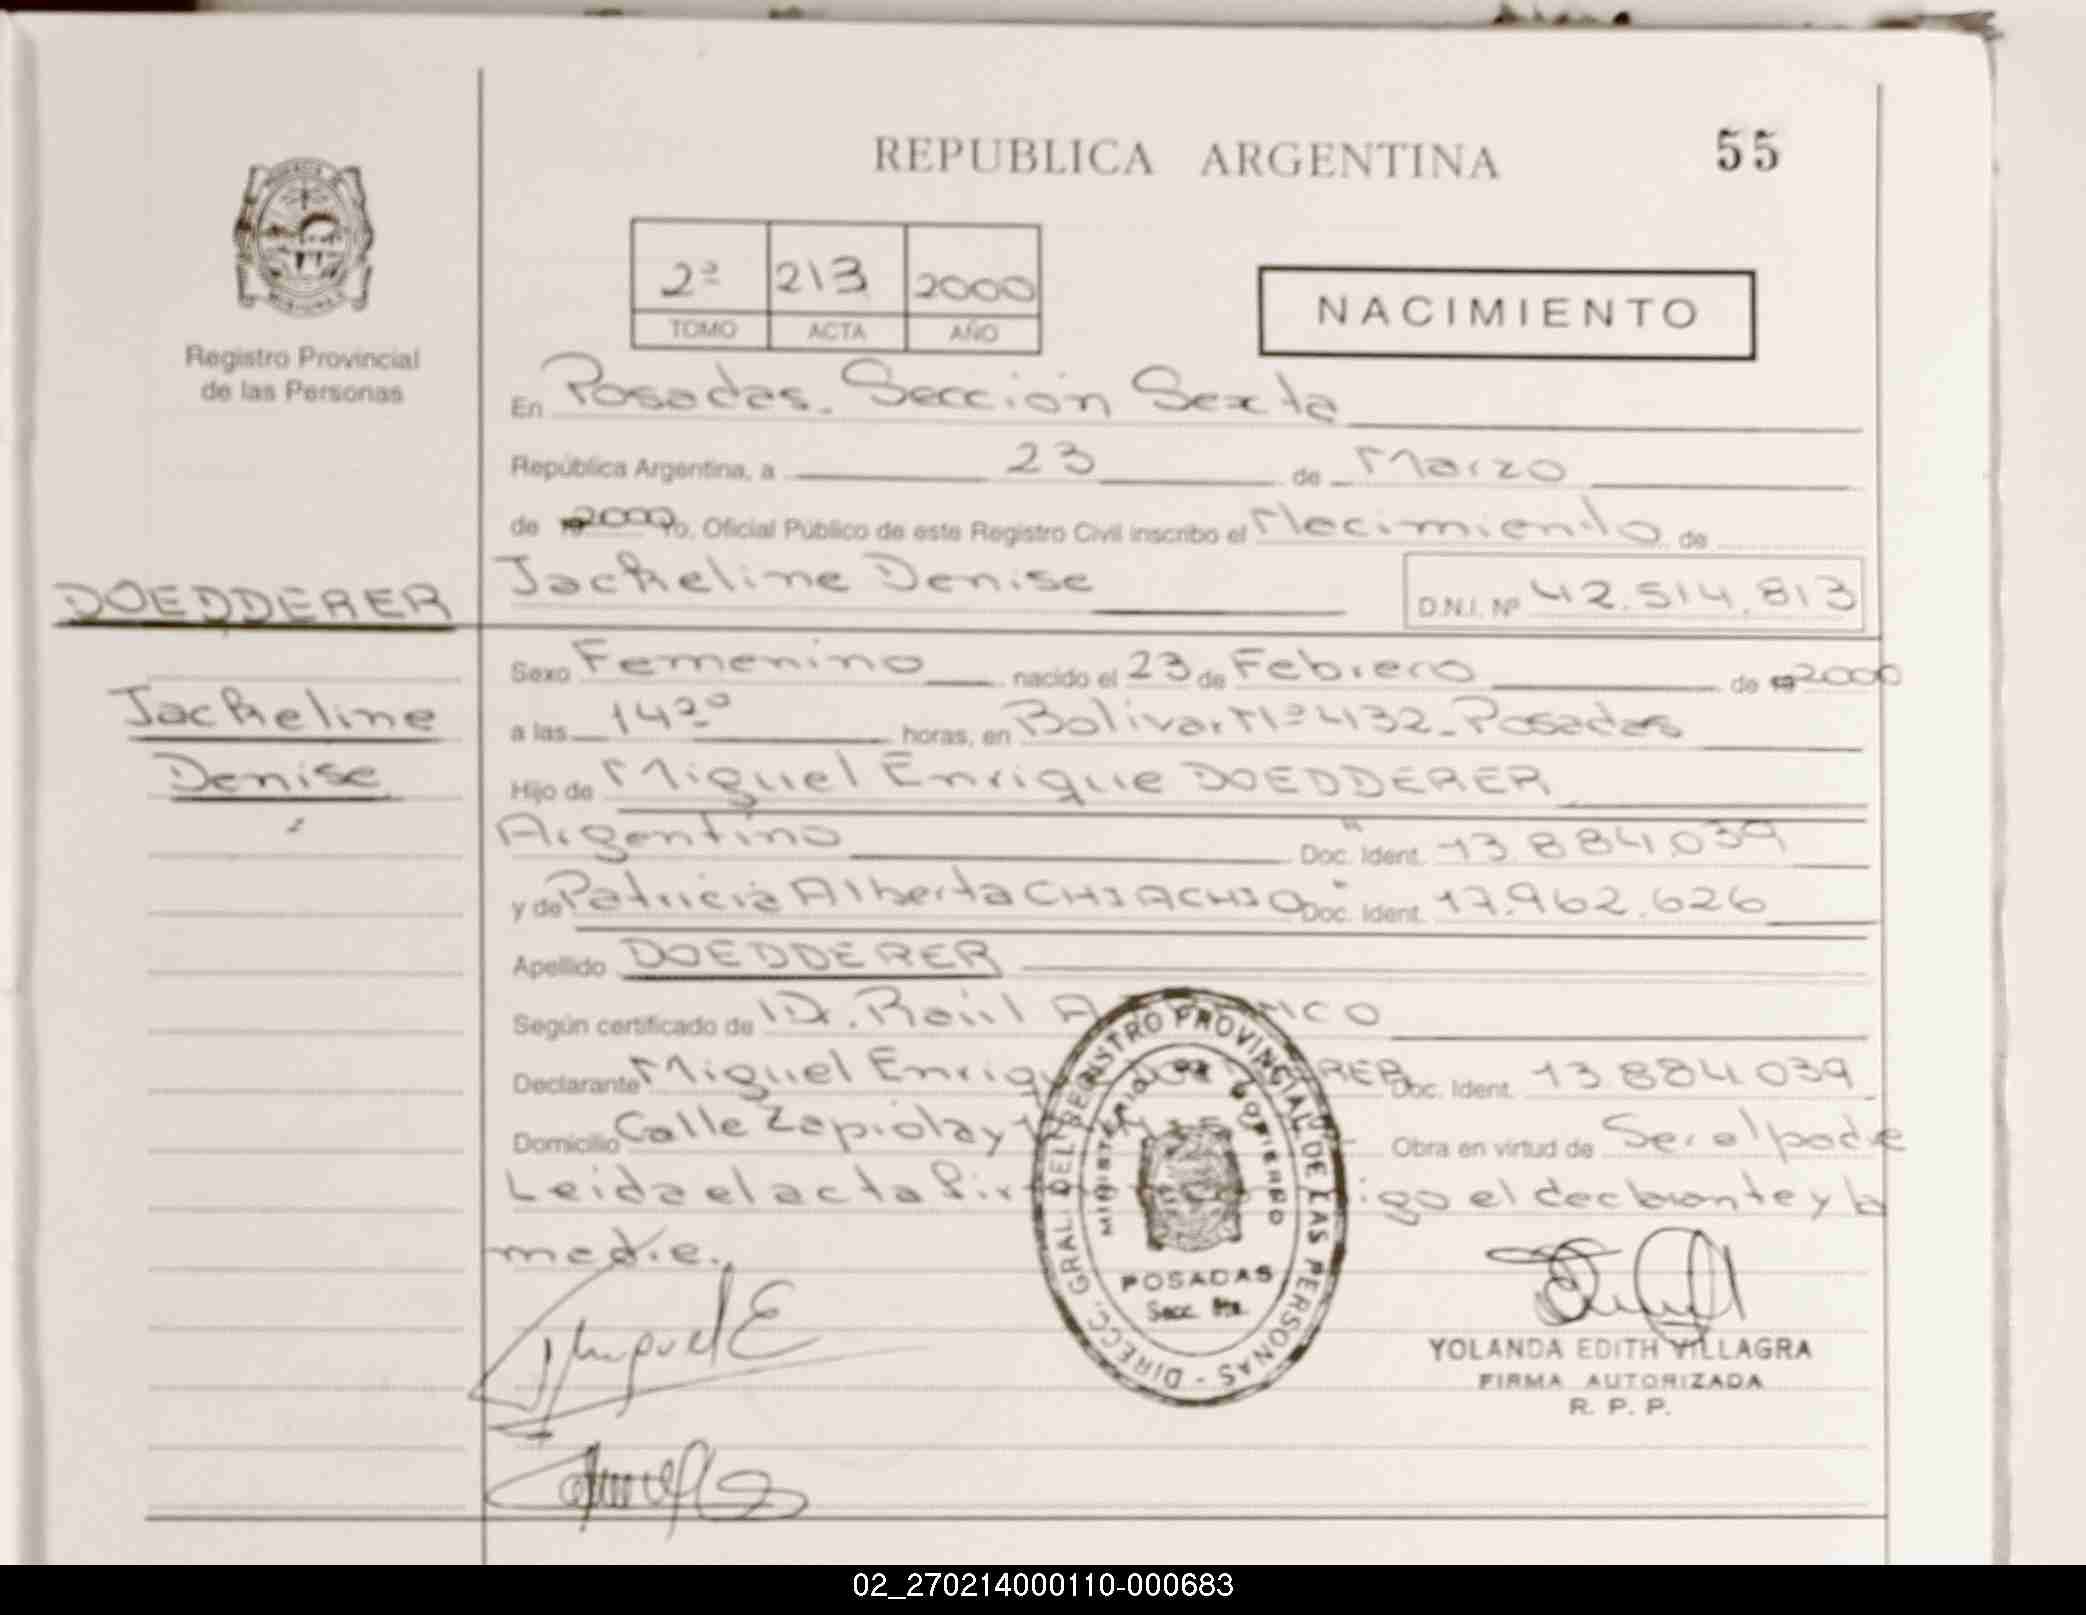 REPUBLICA ARGENTINA
55
2ª 213 2000
TOMO ACTA AÑO
NACIMIENTO
Registro Provincial
de las Personas
En Posadas. Sección Sexta
República Argentina, a 23 de Marzo
de 2000 Yo, Oficial Público de este Registro Civil inscribo el Nacimiento de
DOEDDERER
Jackeline Denise D.N.I. Nº 42.514.813
Jackeline
Denise
Sexo Femenino nacido el 23 de Febrero de 2000
a las 14 horas, en Bolivar Nº 432 - Posadas
Hijo de Miguel Enrique DOEDDERER
Argentino Doc. Ident. 13.884.039
y de Patricia Alberta CHIACHIO Doc. Ident. 17.962.626
Apellido DOEDDERER
Según certificado de Dr. Raúl
Declarante Miguel Doc. Ident. 13.884.039
Domicilio Calle Zapiola y Obra en virtud de Ser el padre
Leida el acta el declarante y la
madre.
DIRECC. GRAL. DEL REGISTRO PROVINCIAL DE LAS PERSONAS
MINISTERIO DE GOBIERNO
POSADAS
Secc. 6ta.
Miguel E
YOLANDA EDITH VILLAGRA
FIRMA AUTORIZADA
R. P. P.
02_270214000110-000683